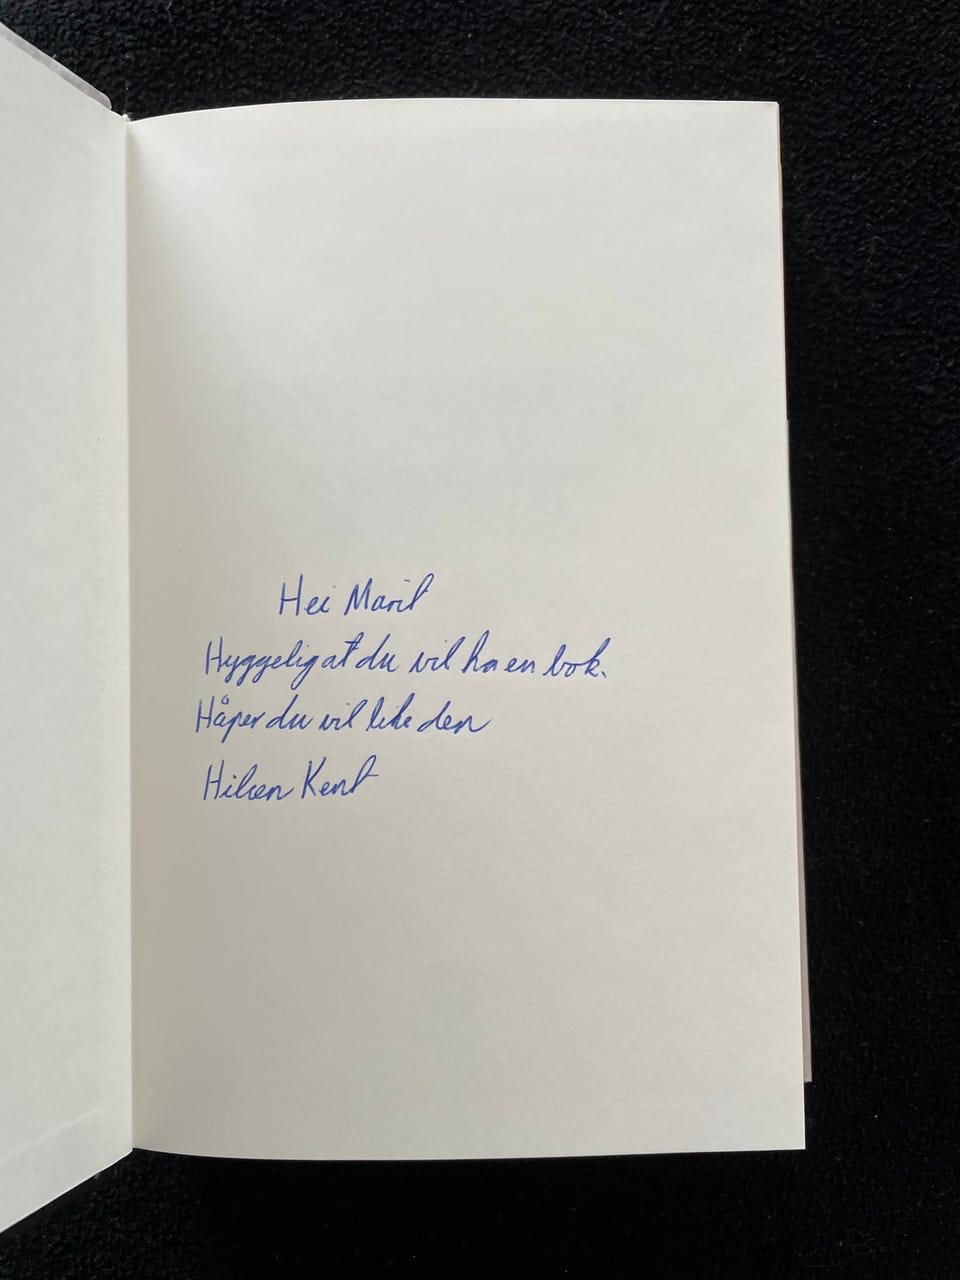 Hei Marit
Hyggelig at du vil ha en bok.
Håper du vil like den
Hilsen Kent